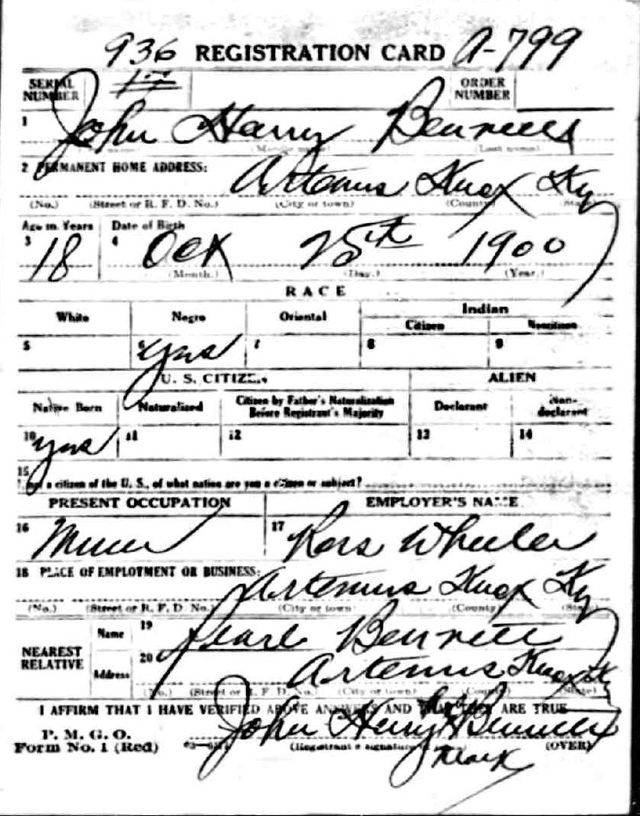 936 REGISTRATION CARD A-799
SERIAL NUMBER 17 ORDER NUMBER
1 John Harry Bennett
(Middle name) (Last name)
2 PERMANENT HOME ADDRESS: Artemus Knox Ky
(No.) (Street or R. F. D. No.) (City or town) (County) (State)
Age in Years Date of Birth
3 18 4 Oct 25th 1900
(Month.) (Day.) (Year.)
RACE
White Negro Oriental Indian
Citizen Noncitizen
5 yes 7 8 9
U. S. CITIZEN ALIEN
Native Born Naturalized Citizen by Father's Naturalization Before Registrant's Majority Declarant Non-declarant
10 yes 11 12 13 14
15
not a citizen of the U. S., of what nation are you a citizen or subject?
PRESENT OCCUPATION EMPLOYER'S NAME
16 Miner 17 Ross Wheeler
18 PLACE OF EMPLOYMENT OR BUSINESS:
Artemus Knox Ky
(No.) (Street or R. F. D. No.) (City or town) (County) (State)
NEAREST RELATIVE
Name 19 Pearl Bennett
Address 20 Artemus Knox Ky
(No.) (Street or R. F. D. No.) (City or town) (County) (State)
I AFFIRM THAT I HAVE VERIFIED ABOVE ANSWERS AND THAT THEY ARE TRUE
P. M. G. O.
Form No. 1 (Red) John Henry X Bennett
his
mark
(Registrant's signature or mark) (OVER)